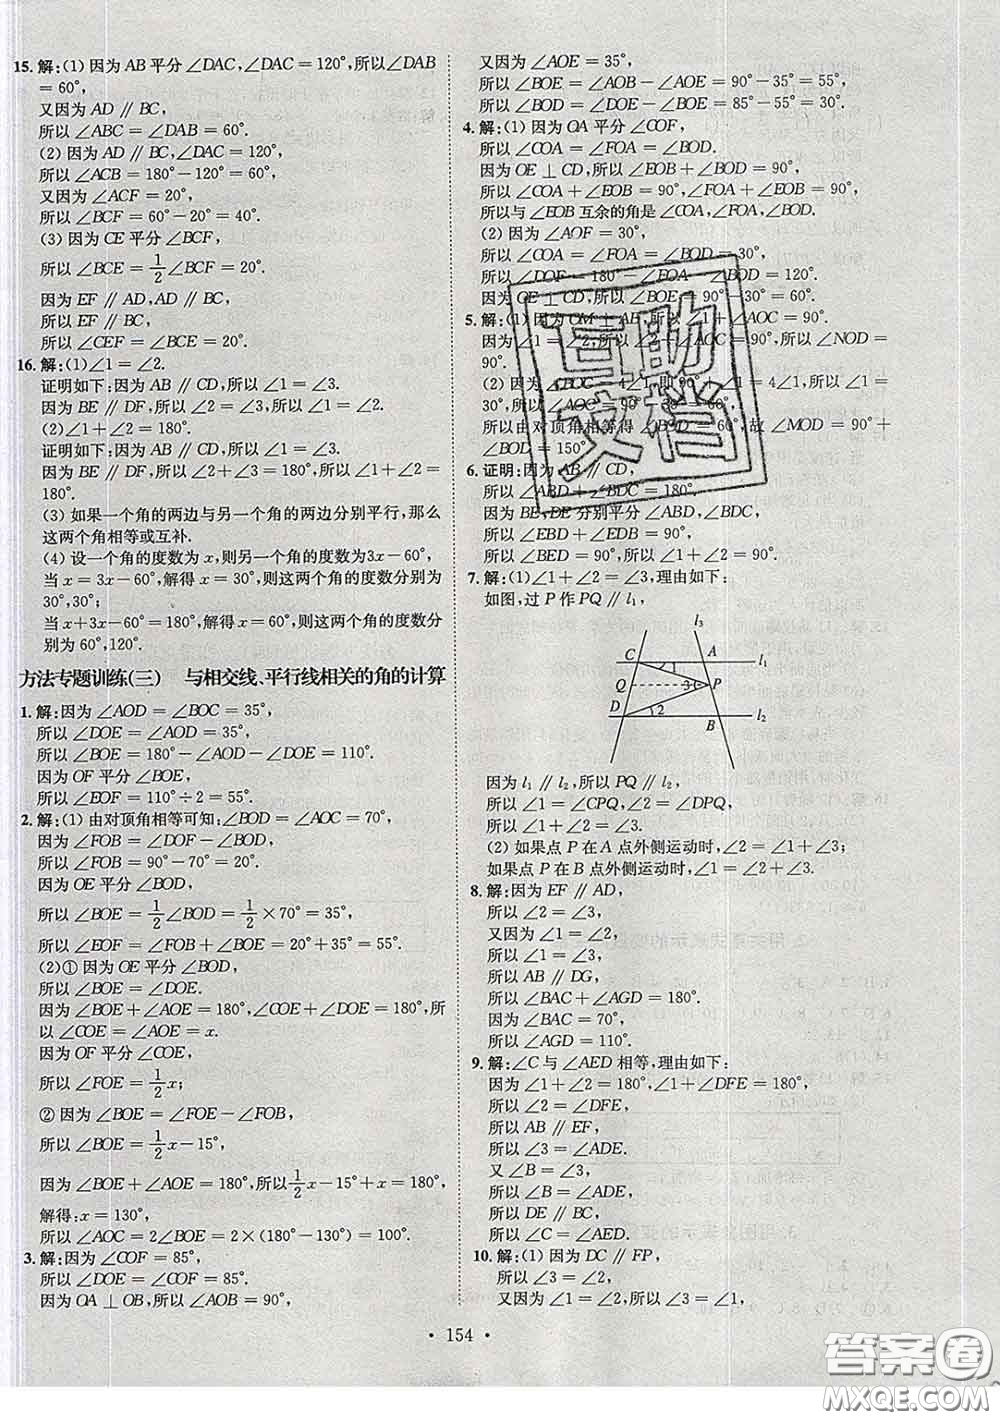 15. 解:(1) 因为 AB 平分∠DAC,∠DAC=120°,所以∠DAB
=60°,
又因为 AD∥BC,
所以∠ABC=∠DAB=60°.
(2) 因为 AD∥BC,∠DAC=120°,
所以∠ACB=180°-120°=60°.
又因为∠ACF=20°,
所以∠BCF=60°-20°=40°.
(3) 因为 CE 平分∠BCF,
所以∠BCE=1/2∠BCF=20°.
因为 EF∥AD,AD∥BC,
所以 EF∥BC,
所以∠CEF=∠BCE=20°.
16. 解:(1)∠1=∠2.
证明如下:因为 AB∥CD,所以∠1=∠3.
因为 BE∥DF,所以∠2=∠3,所以∠1=∠2.
(2)∠1+∠2=180°.
证明如下:因为 AB∥CD,所以∠1=∠3.
因为 BE∥DF,所以∠2+∠3=180°,所以∠1+∠2=
180°.
(3) 如果一个角的两边与另一个角的两边分别平行,那么
这两个角相等或互补.
(4) 设一个角的度数为 x,则另一个角的度数为3x-60°,
当 x=3x-60°,解得 x=30°,则这两个角的度数分别为
30°,30°;
当 x+3x-60°=180°,解得 x=60°,则这两个角的度数分
别为 60°,120°.
方法专题训练(三) 与相交线、平行线相关的角的计算
1. 解:因为∠AOD=∠BOC=35°,
所以∠DOE=∠AOD=35°,
所以∠BOE=180°-∠AOD-∠DOE=110°.
因为 OF 平分∠BOE,
所以∠EOF=110°÷2=55°.
2. 解:(1) 由对顶角相等可知:∠BOD=∠AOC=70°,
因为∠FOB=∠DOF-∠BOD,
所以∠FOB=90°-70°=20°.
因为 OE 平分∠BOD,
所以∠BOE=1/2∠BOD=1/2×70°=35°,
所以∠EOF=∠FOB+∠BOE=20°+35°=55°.
(2)① 因为 OE 平分∠BOD,
所以∠BOE=∠DOE.
因为∠BOE+∠AOE=180°,∠COE+∠DOE=180°,所
以∠COE=∠AOE=x.
因为 OF 平分∠COE,
所以∠FOE=1/2x;
② 因为∠BOE=∠FOE-∠FOB,
所以∠BOE=1/2x-15°,
因为∠BOE+∠AOE=180°,所以1/2x-15°+x=180°,
解得:x=130°,
所以∠AOC=2∠BOE=2×(180°-130°)=100°.
3. 解:因为∠COF=85°,
所以∠DOE=∠COF=85°.
因为 OA⊥OB,所以∠AOB=90°,
又因为∠AOE=35°,
所以∠BOE=∠AOB-∠AOE=90°-35°=55°,
所以∠BOD=∠DOE-∠BOE=85°-55°=30°.
4. 解:(1) 因为 OA 平分∠COF,
所以∠COA=∠FOA=∠BOD.
因为 OE⊥CD,所以∠EOB+∠BOD=90°,
所以∠COA+∠EOB=90°,∠FOA+∠EOB=90°,
所以与∠EOB互余的角是∠COA,∠FOA,∠BOD.
(2) 因为∠AOF=30°,
所以∠COA=∠FOA=∠BOD=30°,
所以∠DOF=180°-∠FOA-∠BOD=120°.
因为 OE⊥CD,所以∠BOE=90°-30°=60°.
5. 解:(1) 因为 OM⊥AB,所以∠1+∠AOC=90°.
因为∠1=∠2,所以∠2+∠AOC=90°,所以∠NOD=
90°.
(2) 因为∠BOC=4∠1,即 90°+∠1=4∠1,所以∠1=
30°,所以∠AOC=90°-30°=60°,
所以由对顶角相等得∠BOD=60°,故∠MOD=90°+
∠BOD=150°.
6. 证明:因为 AB∥CD,
所以∠ABD+∠BDC=180°.
因为 BE,DE 分别平分∠ABD,∠BDC,
所以∠EBD+∠EDB=90°,
所以∠BED=90°.
7. 解:(1)∠1+∠2=∠3,理由如下:
如图,过 P 作 PQ∥l₁,
l₃
C 1 A l₁
Q 3 P
D 2 B l₂
因为 l₁∥l₂,所以 PQ∥l₂,
所以∠1=∠CPQ,∠2=∠DPQ,
所以∠1+∠2=∠3.
(2) 如果点 P 在 A 点外侧运动时,∠2=∠1+∠3;
如果点 P 在 B 点外侧运动时,∠1=∠2+∠3.
8. 解:因为 EF∥AD,
所以∠2=∠3,
又因为∠1=∠2,
所以∠1=∠3,
所以 AB∥DG,
所以∠BAC+∠AGD=180°.
因为∠BAC=70°,
所以∠AGD=110°.
9. 解:∠C 与∠AED 相等,理由如下:
因为∠1+∠2=180°,∠1+∠DFE=180°,
所以∠2=∠DFE,
所以 AB∥EF,
所以∠3=∠ADE.
又∠B=∠3,
所以∠B=∠ADE,
所以 DE∥BC,
所以∠C=∠AED.
10. 解:(1) 因为 DC∥FP,
所以∠3=∠2,
又因为∠1=∠2,所以∠3=∠1,
• 154 •
互助
文档
答案圈
MXQE.COM